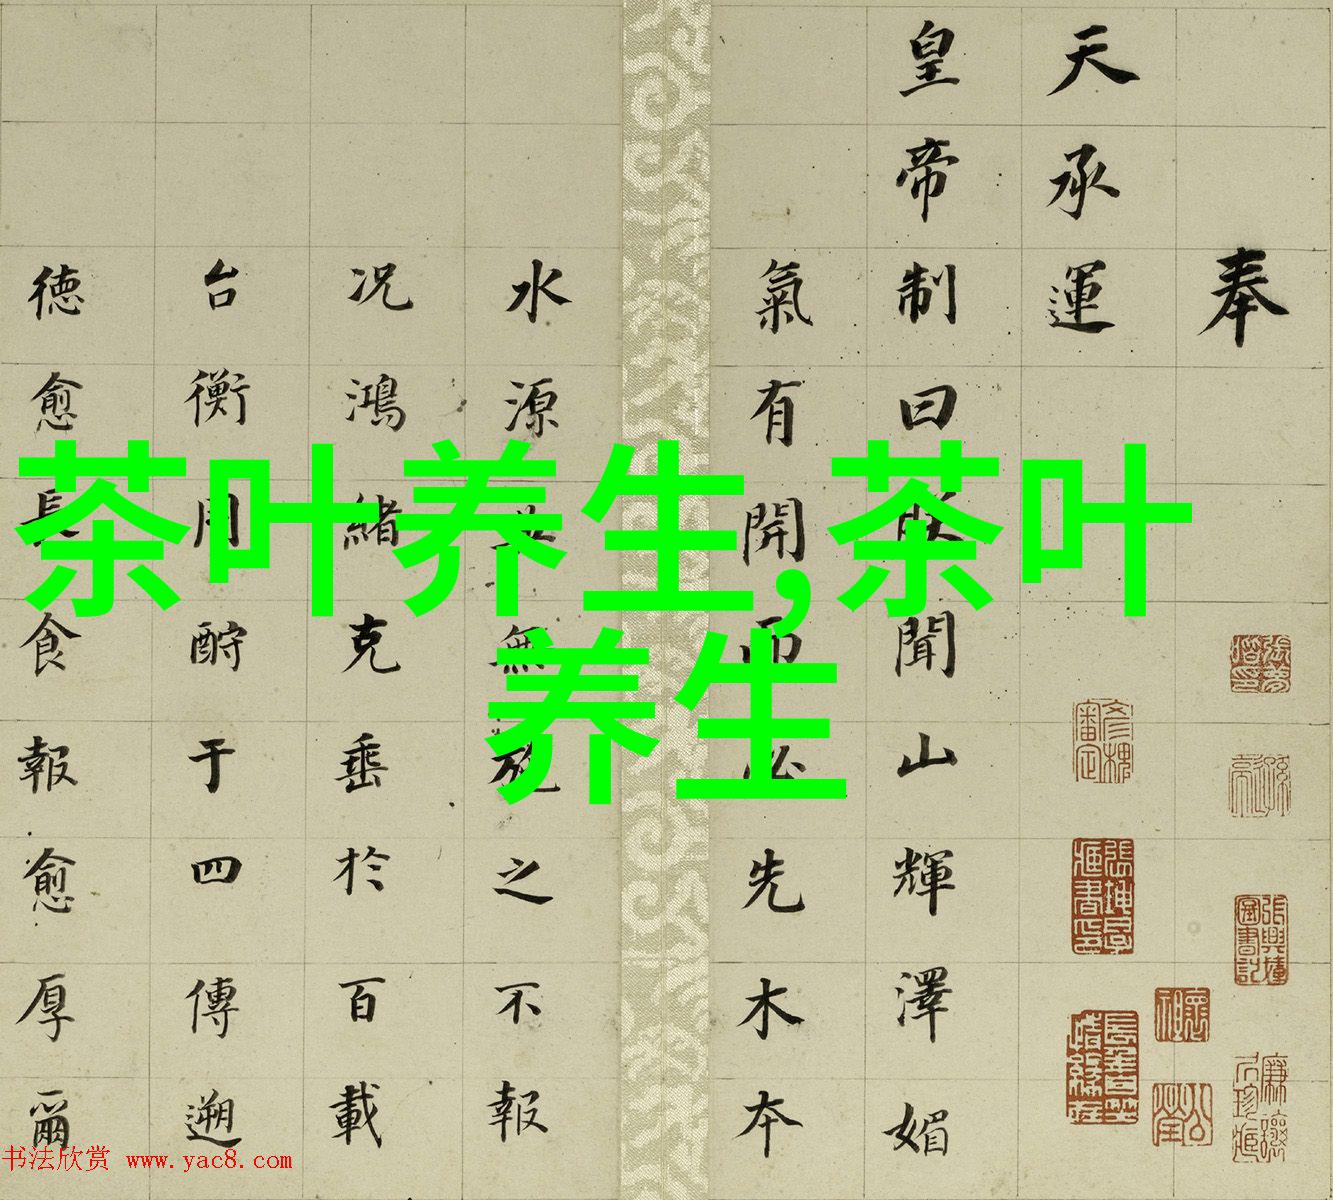 奉
天承運
皇帝制曰朕聞山輝澤媚
氣有開而必先木本
水源無之不報
況鴻緒克垂於百載
台衡用酧于四傳遡
德愈長食報愈厚爾
茶叶养生,茶叶
养生
书法欣赏 www.yac8.com